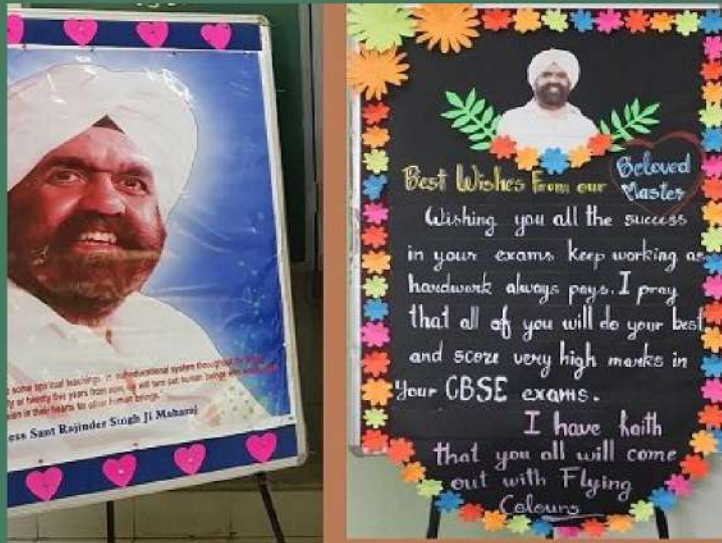 some spiritual teachings in our educational system throughout the
or twenty five years from now, we will turn out human beings who
in their hearts for other human beings."
ess Sant Rajinder Singh Ji Maharaj
Best Wishes From our
Beloved
Master
Wishing you all the success
in your exams keep working as
hardwork always pays. I pray
that all of you will do your best
and score very high marks in
your CBSE exams.
I have haith
that you all will come
out with Flying
Colours